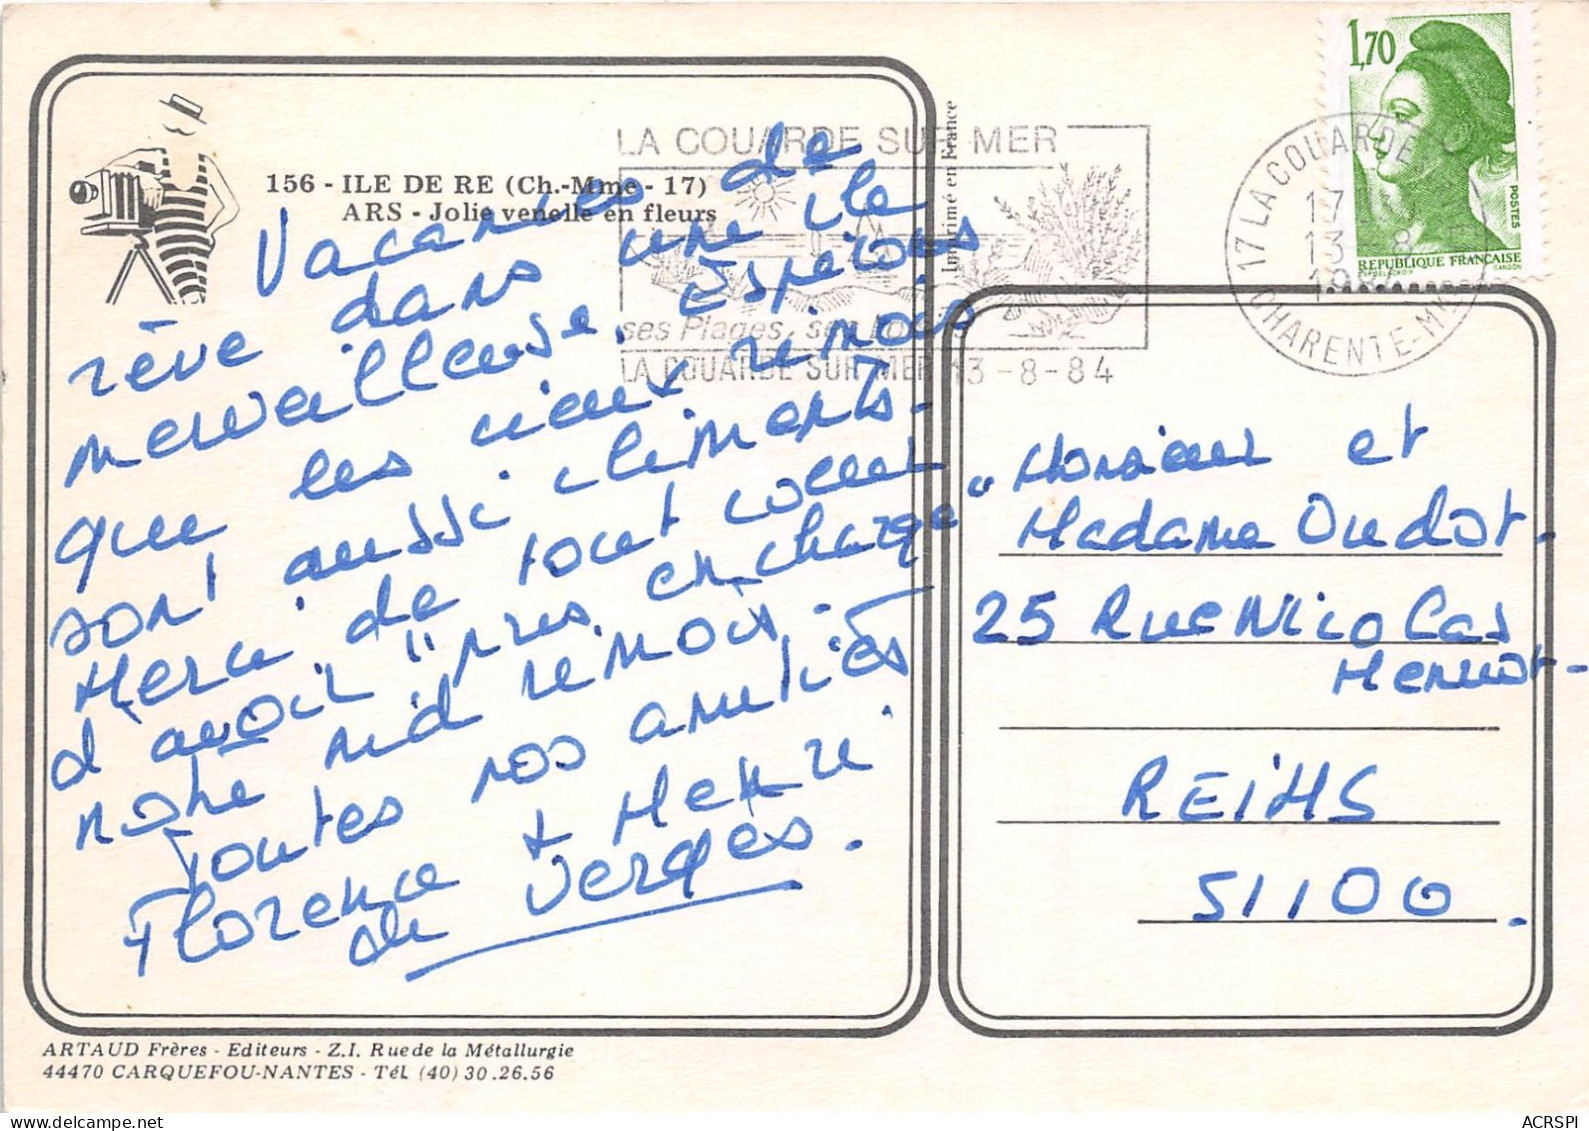 156 - ILE DE RE (Ch.-Mme - 17)
ARS - Jolie venelle en fleurs
Vacances de
rêve dans une île
merveilleuse. Espérons
que les cieux rémois
sont aussi cléments.
Merci de tout coeur
d'avoir "pris en charge"
notre nid rémois.
Toutes nos amitiés
Florence & Henri
de Verges.
ARTAUD Frères - Editeurs - Z.I. Rue de la Métallurgie
44470 CARQUEFOU-NANTES - Tél. (40) 30.26.56
Imprimé en France
LA COUARDE SUR MER
ses Plages, ses
LA COUARDE SUR MER 13-8-84
17 LA COUARDE
17
13 8
1984
CHARENTE-M
1,70
POSTES
RÉPUBLIQUE FRANÇAISE
GANDON
Monsieur et
Madame Oudot.
25 Rue Nicolas
Henriot.
REIMS
51100.
delcampe.net
ACRSPI